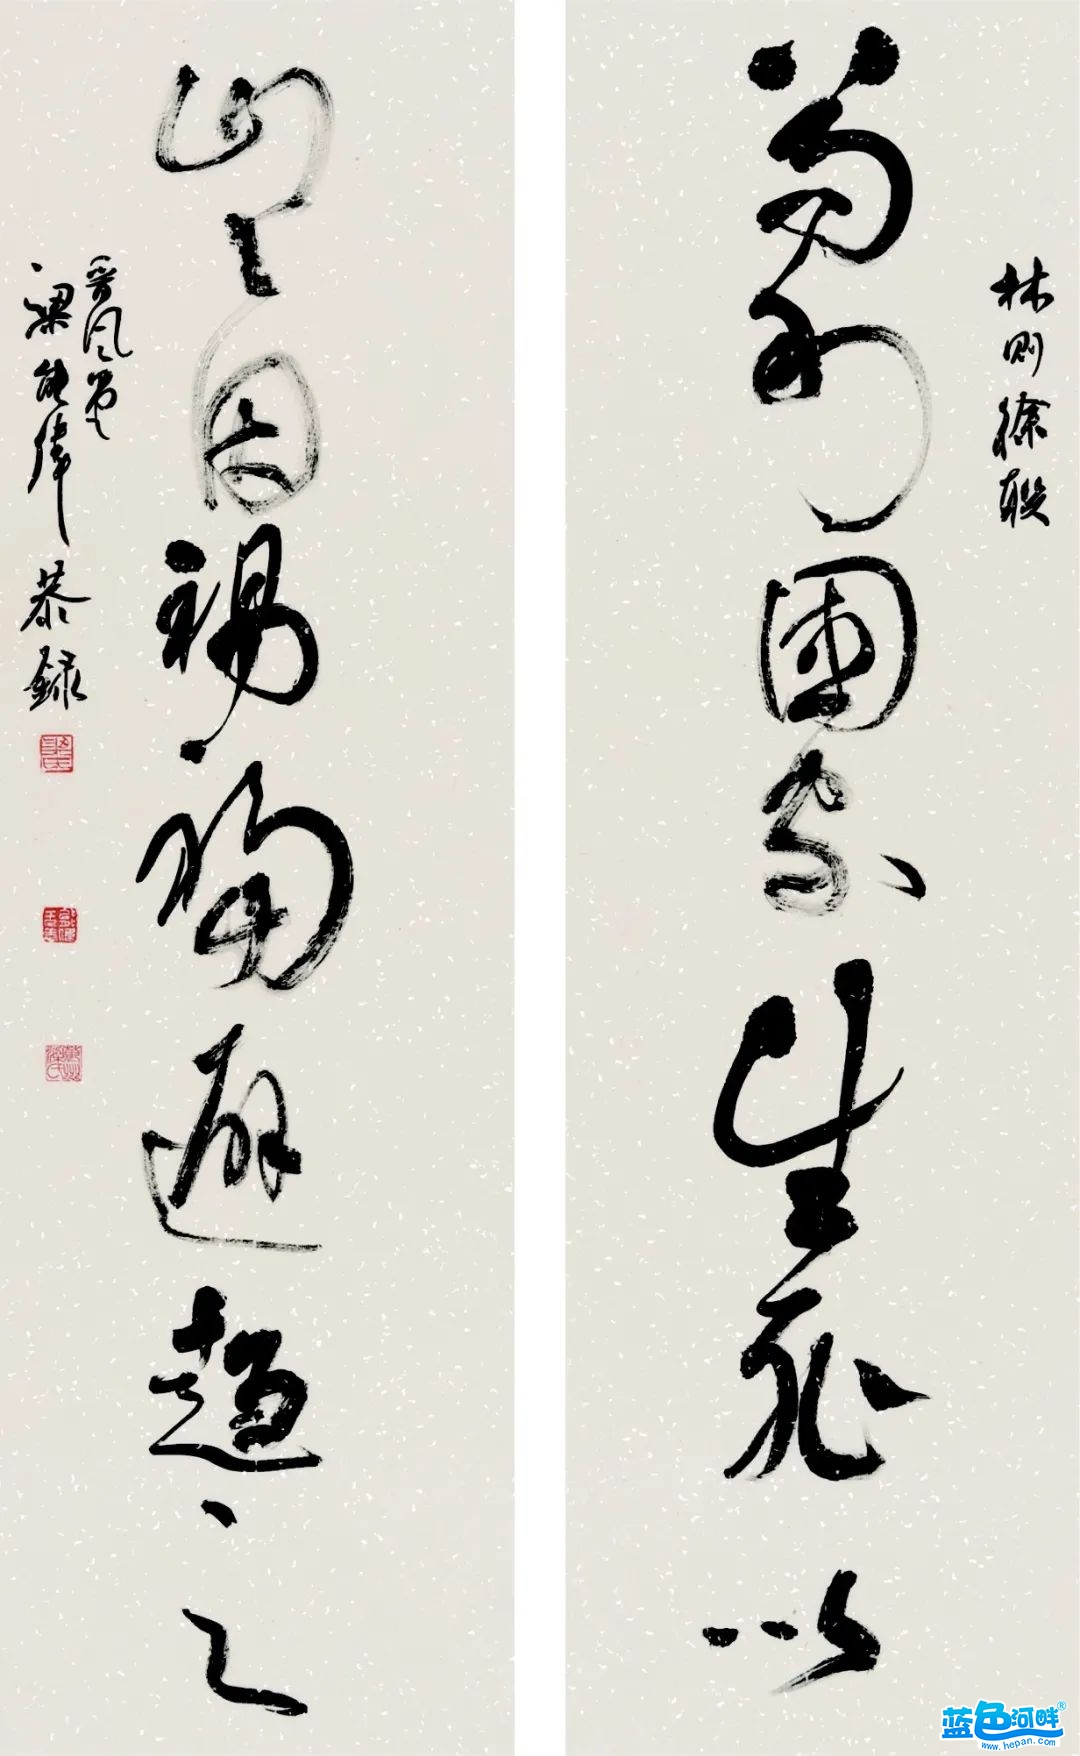 林則徐聯
苟利國家生死以
豈因禍福避趨之
晉風堂
梁能偉恭録
蓝色河畔®
www.hepan.com